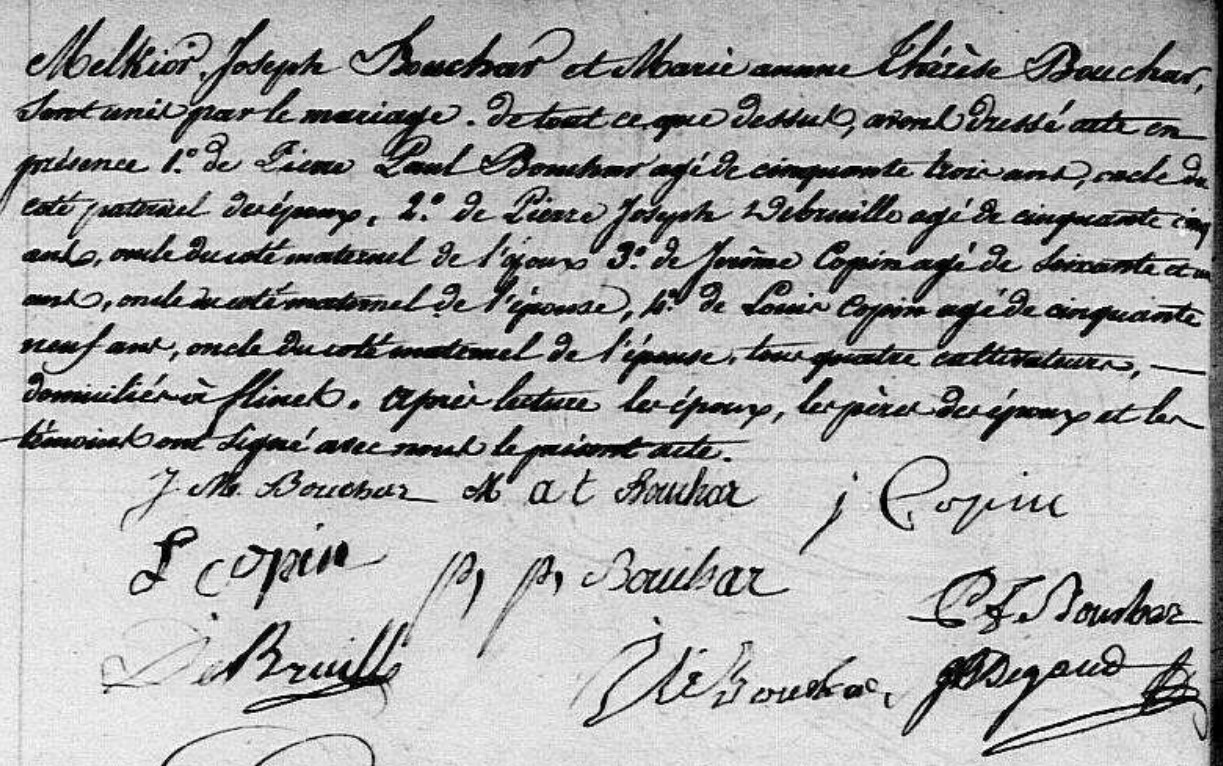 Melkior, Joseph Bouchar et Marie anne Thérèse Bouchar,
sont unis par le mariage. de tout ce que dessus, avons dressé acte en
présence 1.º de Pierre Paul Bouchar agé de cinquante trois ans, oncle du
coté paternel des époux, 2.º de Pierre Joseph Debruille agé de cinquante cinq
ans, oncle du coté maternel de l'époux 3.º de Jérôme Copin agé de soixante et un
ans, oncle du coté maternel de l'épouse, 4.º de Louis Copin agé de cinquante
neuf ans, oncle du coté maternel de l'épouse, tous quatre cultivateurs, —
domiciliés à flines. après lecture les époux, les pères des époux et les
témoins ont signé avec nous le présent acte.
J. M. Bouchar M a t Bouchar j Copin
L Copin p, p, Bouchar
P F Bouchar
DeBruille Bouchar, JBDegaud